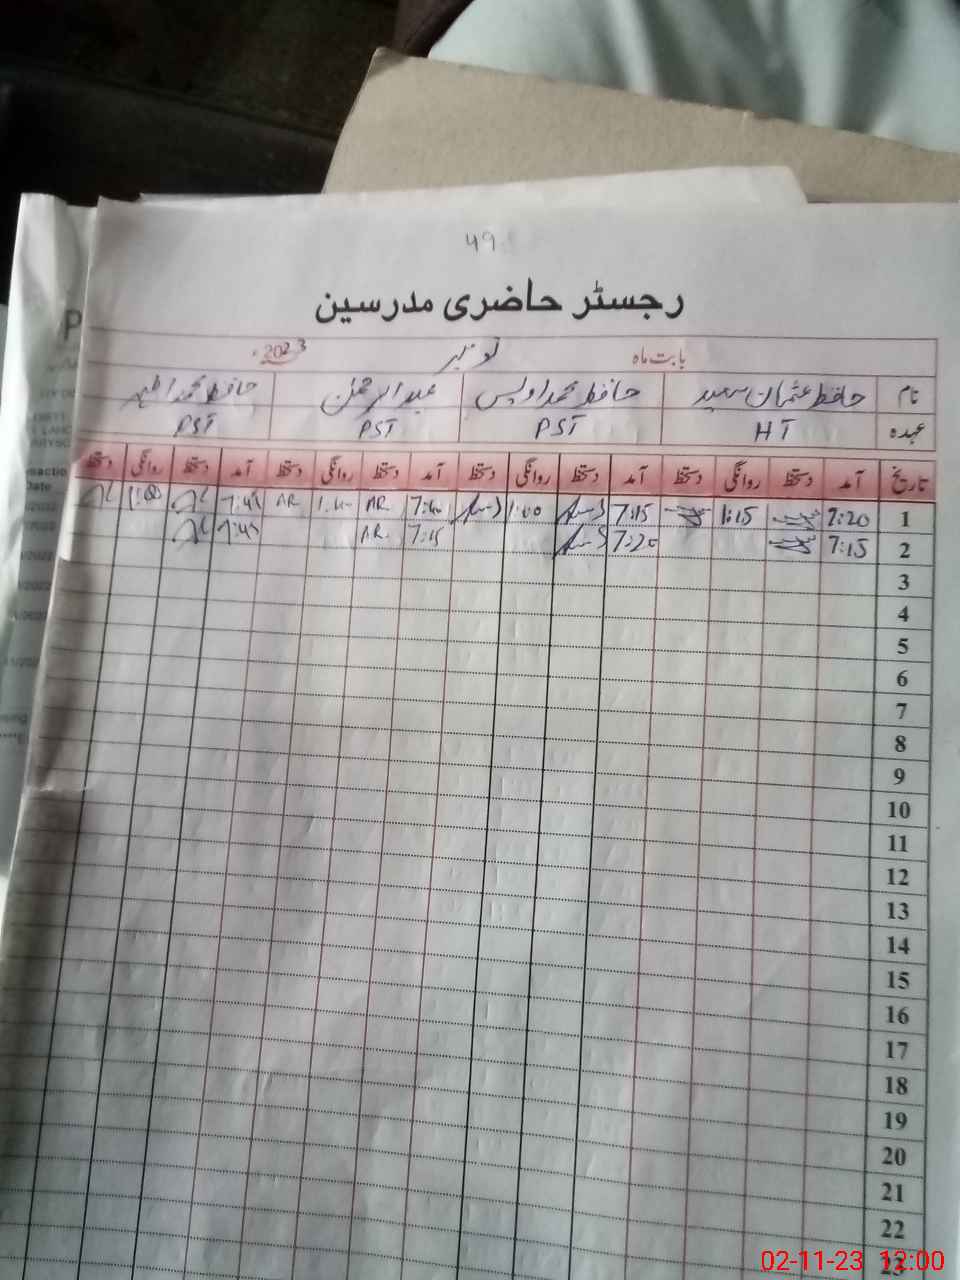 49
رجسٹر حاضری مدرسین
بابت ماہ نومبر 2023ء
نام حافظ عثمان سعید حافظ محمد اویس عبدالرحمٰن حافظ محمد اطہر
عہدہ HT PST PST PST
تاریخ آمد دستخط روانگی دستخط آمد دستخط روانگی دستخط آمد دستخط روانگی دستخط آمد دستخط روانگی دستخط
1 7:20 1:15 7:15 1:00 7:40 AR 1:00 AR 7:45 1:00
2 7:15 7:20 7:15 AR 7:45
3
4
5
6
7
8
9
10
11
12
13
14
15
16
17
18
19
20
21
22
23
02-11-23 12:00